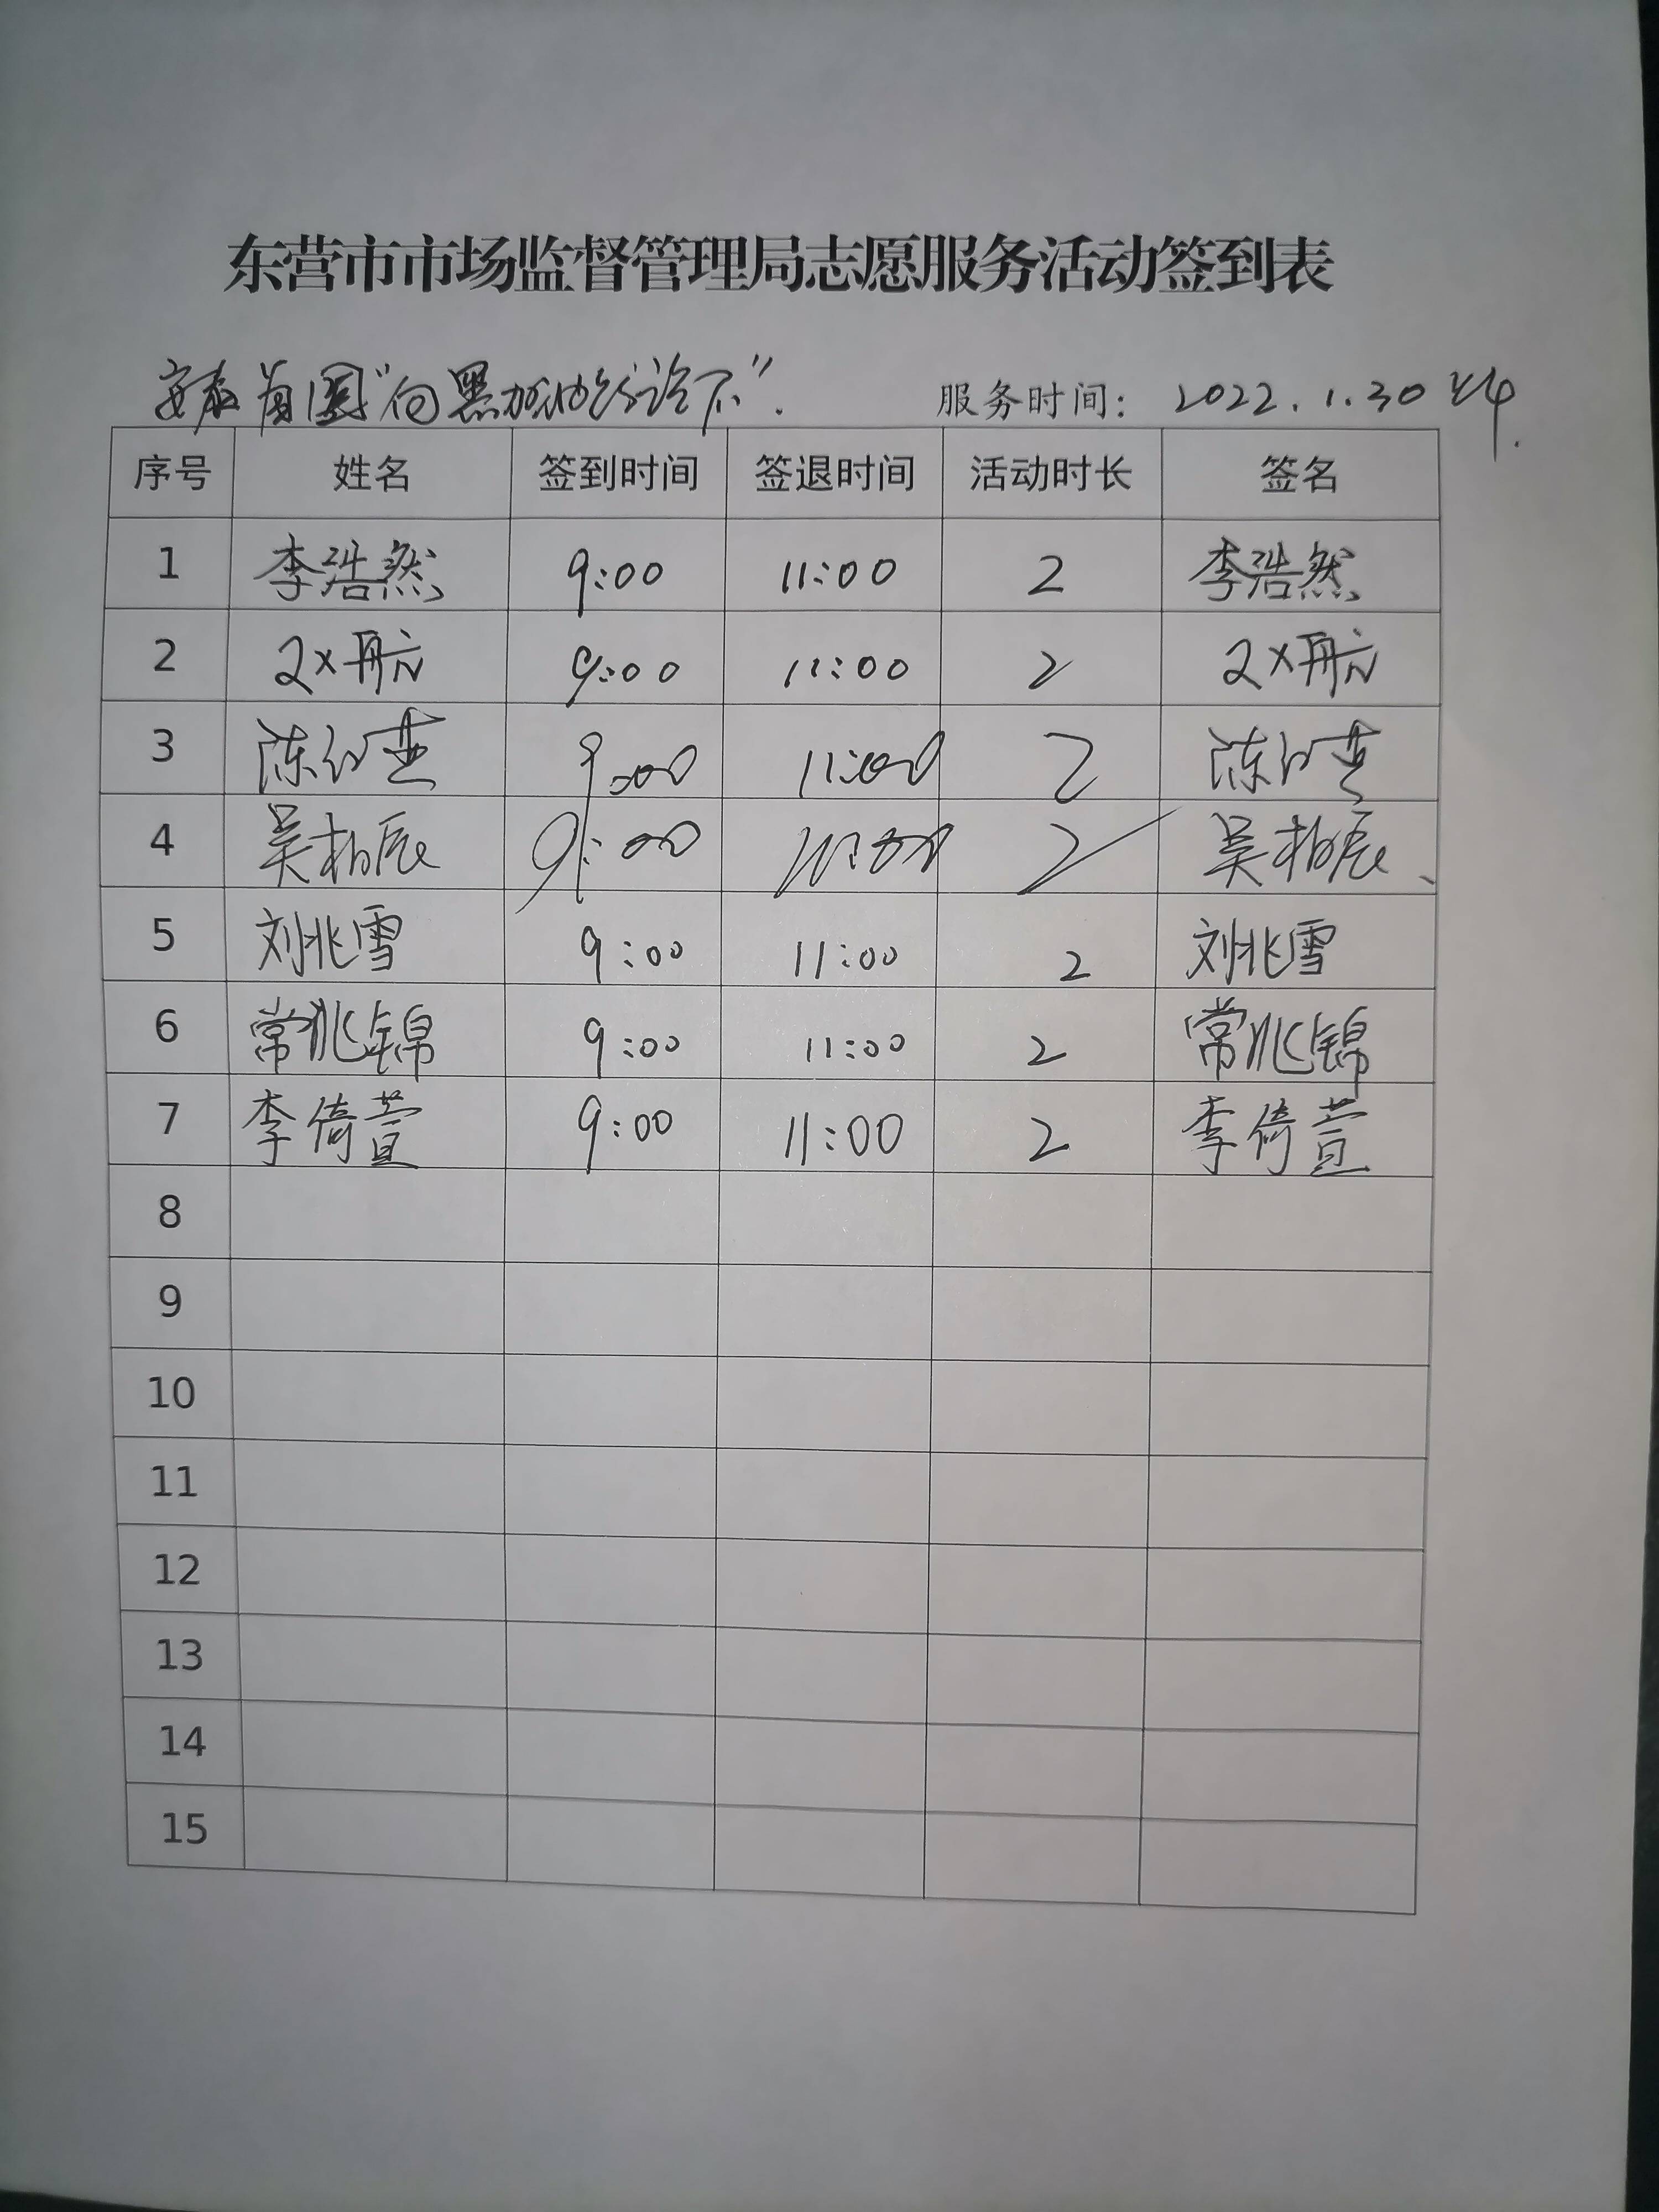 东营市市场监督管理局志愿服务活动签到表
"向黑加油站说不". 服务时间: 2022.1.30 上午.
序号 姓名 签到时间 签退时间 活动时长 签名
1 李浩然 9:00 11:00 2 李浩然
2 9:00 11:00 2
3 陈红燕 9:00 11:00 2 陈红燕
4 吴柏辰 9:00 11:00 2 吴柏辰
5 刘兆雪 9:00 11:00 2 刘兆雪
6 常兆锦 9:00 11:00 2 常兆锦
7 李倚萱 9:00 11:00 2 李倚萱
8
9
10
11
12
13
14
15